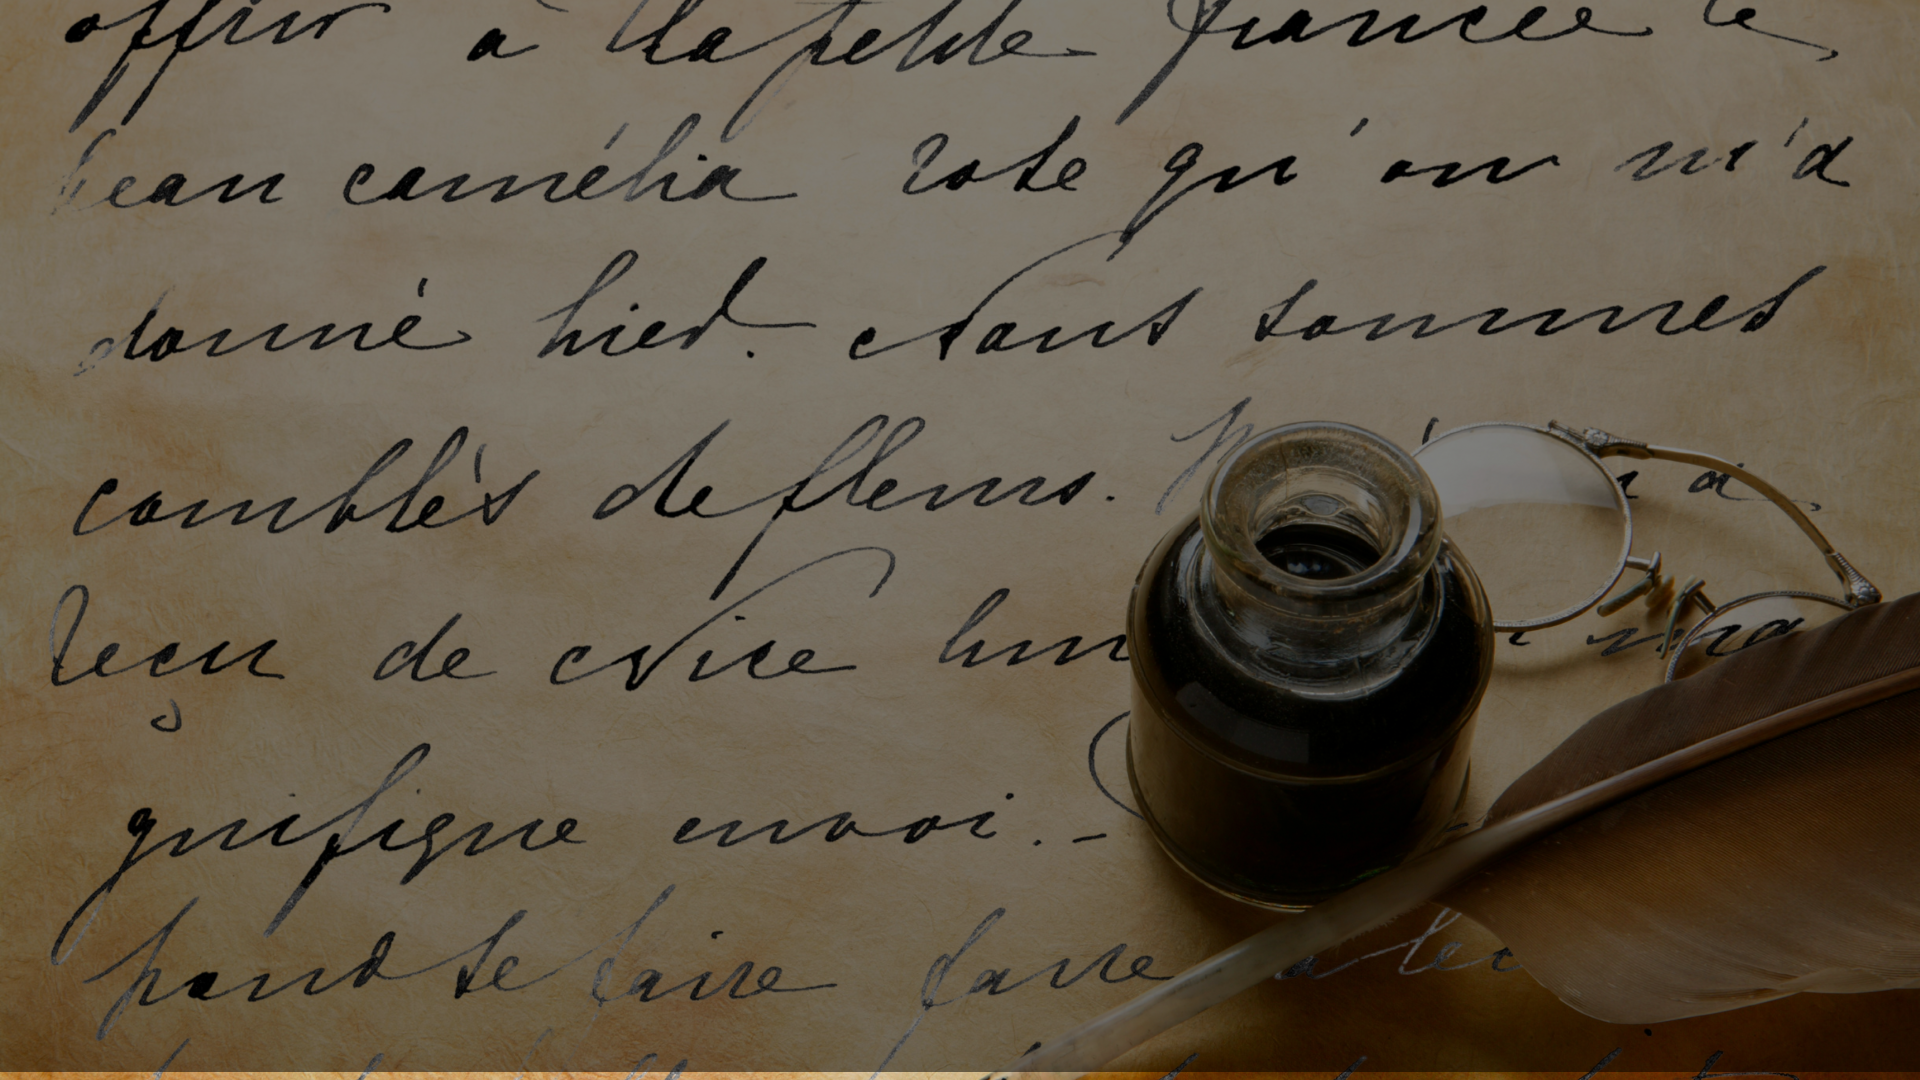 offrir à la petite fiancée le
beau camélia rose qu'on m'a
donné hier. Nous sommes
comblés de fleurs. a
reçu de Nice ma
gnifique envoi. -
pour se faire faire a